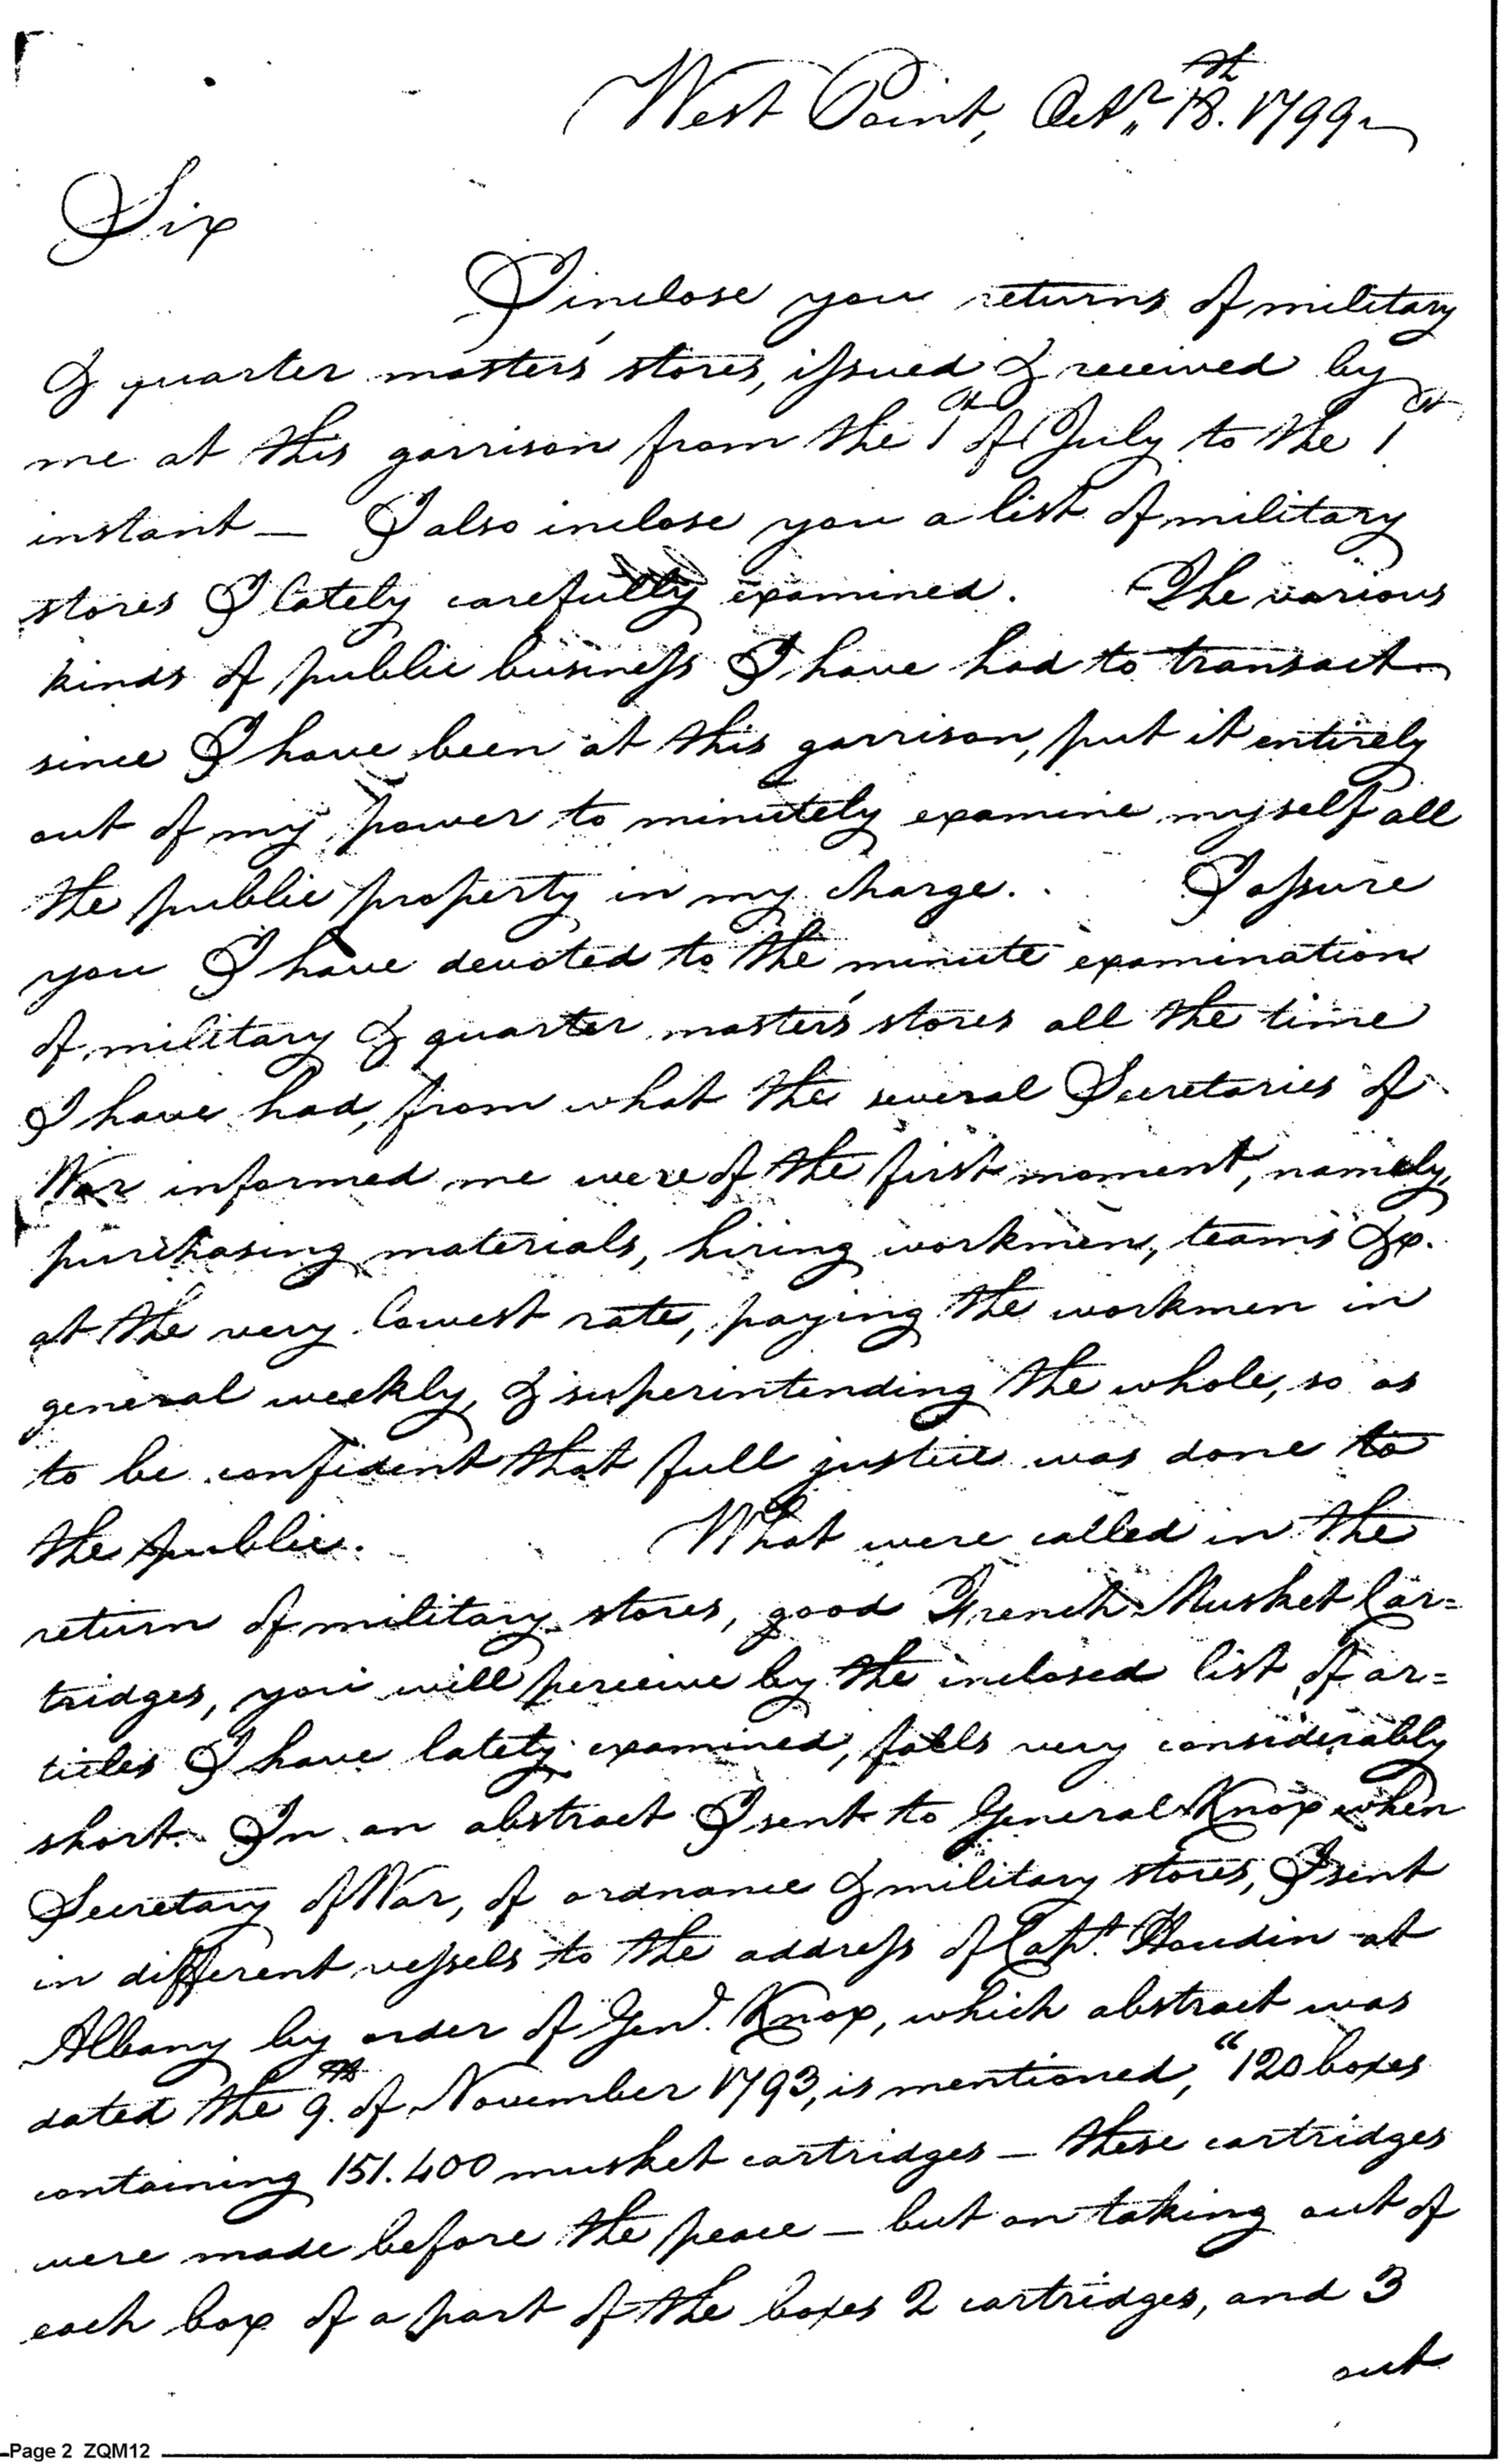 West Point, Octr. 18th. 1799
Sir
I inclose you returns of military
& quarter master's stores, issued & received by
me at this garrison from the 1st of July to the 1st
instant — I also inclose you a list of military
stores I lately carefully examined. The various
kinds of public business I have had to transact
since I have been at this garrison, put it entirely
out of my power to minutely examine myself all
the public property in my charge. I assure
you I have devoted to the minute examination
of military & quarter master's stores all the time
I have had, from what the several Secretaries of
War informed me were of the first moment, namely,
purchasing materials, hiring workmen, teams &c.
at the very lowest rate, paying the workmen in
general weekly, & superintending the whole, so as
to be confident that full justice was done to
the public. What were called in the
return of military stores, good French Musket Car=
tridges, you will perceive by the inclosed list of ar=
ticles I have lately examined, falls very considerably
short. In an abstract I sent to General Knox when
Secretary of War, of ordnance & military stores, I sent
in different vessels to the address of Capt. Houdin at
Albany by order of Genl. Knox, which abstract was
dated the 9th. of November 1793, is mentioned, "120 boxes
containing 151.400 musket cartridges — these cartridges
were made before the peace — but on taking out of
each box of a part of the boxes 2 cartridges, and 3
out
Page 2 ZQM12